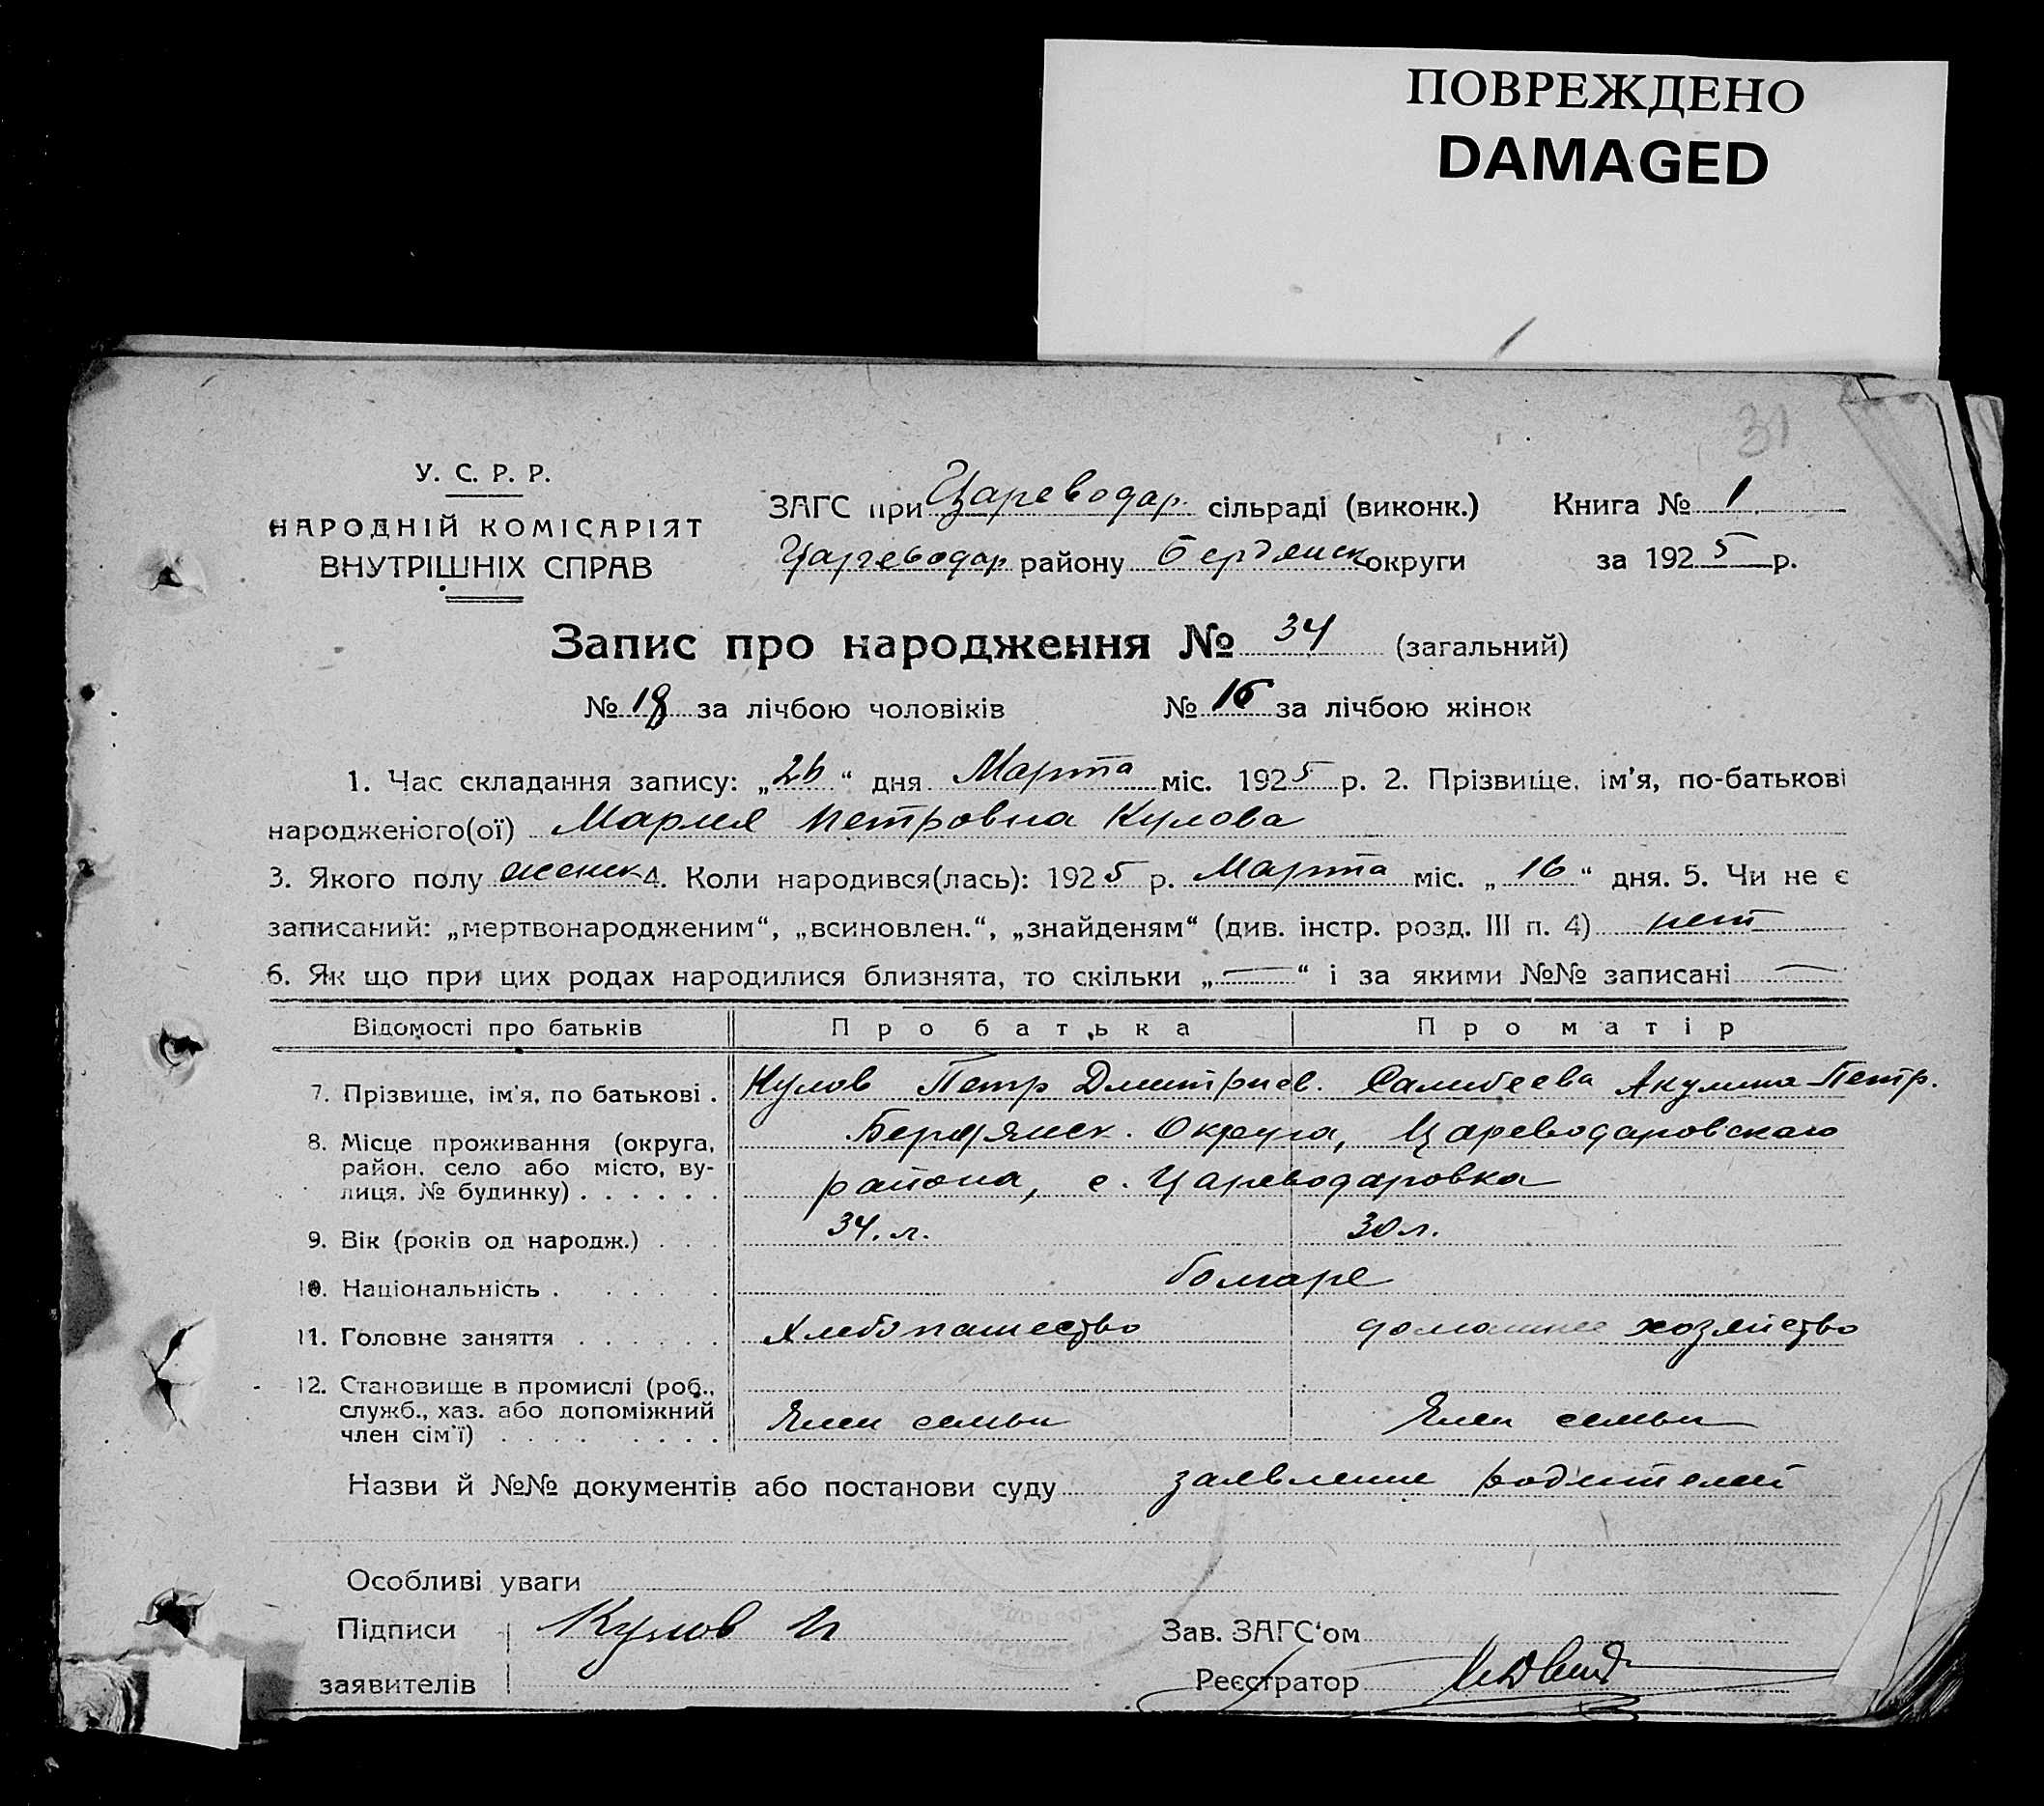 ПОВРЕЖДЕНО
DAMAGED
31
У. С. Р. Р.
НАРОДНІЙ КОМІСАРІЯТ
ВНУТРІШНІХ СПРАВ
ЗАГС при Цареводар. сільраді (виконк.)
Книга № 1
Цареводар району Бердянск округи
за 1925 р.
Запис про народження № 34 (загальний)
№ 18 за лічбою чоловіків № 16 за лічбою жінок
1. Час складання запису: „26“ дня Марта міс. 1925 р. 2. Прізвище, ім’я, по-батькові
народженого(ої) Мария Петровна Кулова
3. Якого полу женск 4. Коли народився(лась): 1925 р. Марта міс. „16“ дня. 5. Чи не є
записаний: „мертвонародженим“, „всиновлен.“, „знайденям“ (див. інстр. розд. III п. 4) нет
6. Як що при цих родах народилися близнята, то скільки „—“ і за якими №№ записані —
Відомості про батьків Про батька Про матір
7. Прізвище, ім’я, по батькові . Кулов Петр Дмитриев. Салибеева Акулина Петр.
8. Місце проживання (округа, Бердянск. Округа, Цареводаровскаго
район, село або місто, ву-
лиця, № будинку) . . . . . . района, с. Цареводаровка
9. Вік (років од народж.) . . . 34. л. 30 л.
10. Національність . . . . . болгаре
11. Головне заняття . . . . . . Хлебопашество домашнее хозяйство
12. Становище в промислі (роб.,
служб., хаз. або допоміжний
член сім’ї) . . . . . . . . Член семьи Член семьи
Назви й №№ документів або постанови суду заявление родителей
Особливі уваги
Підписи Кулов П Зав. ЗАГС‘ом
заявителів Реєстратор